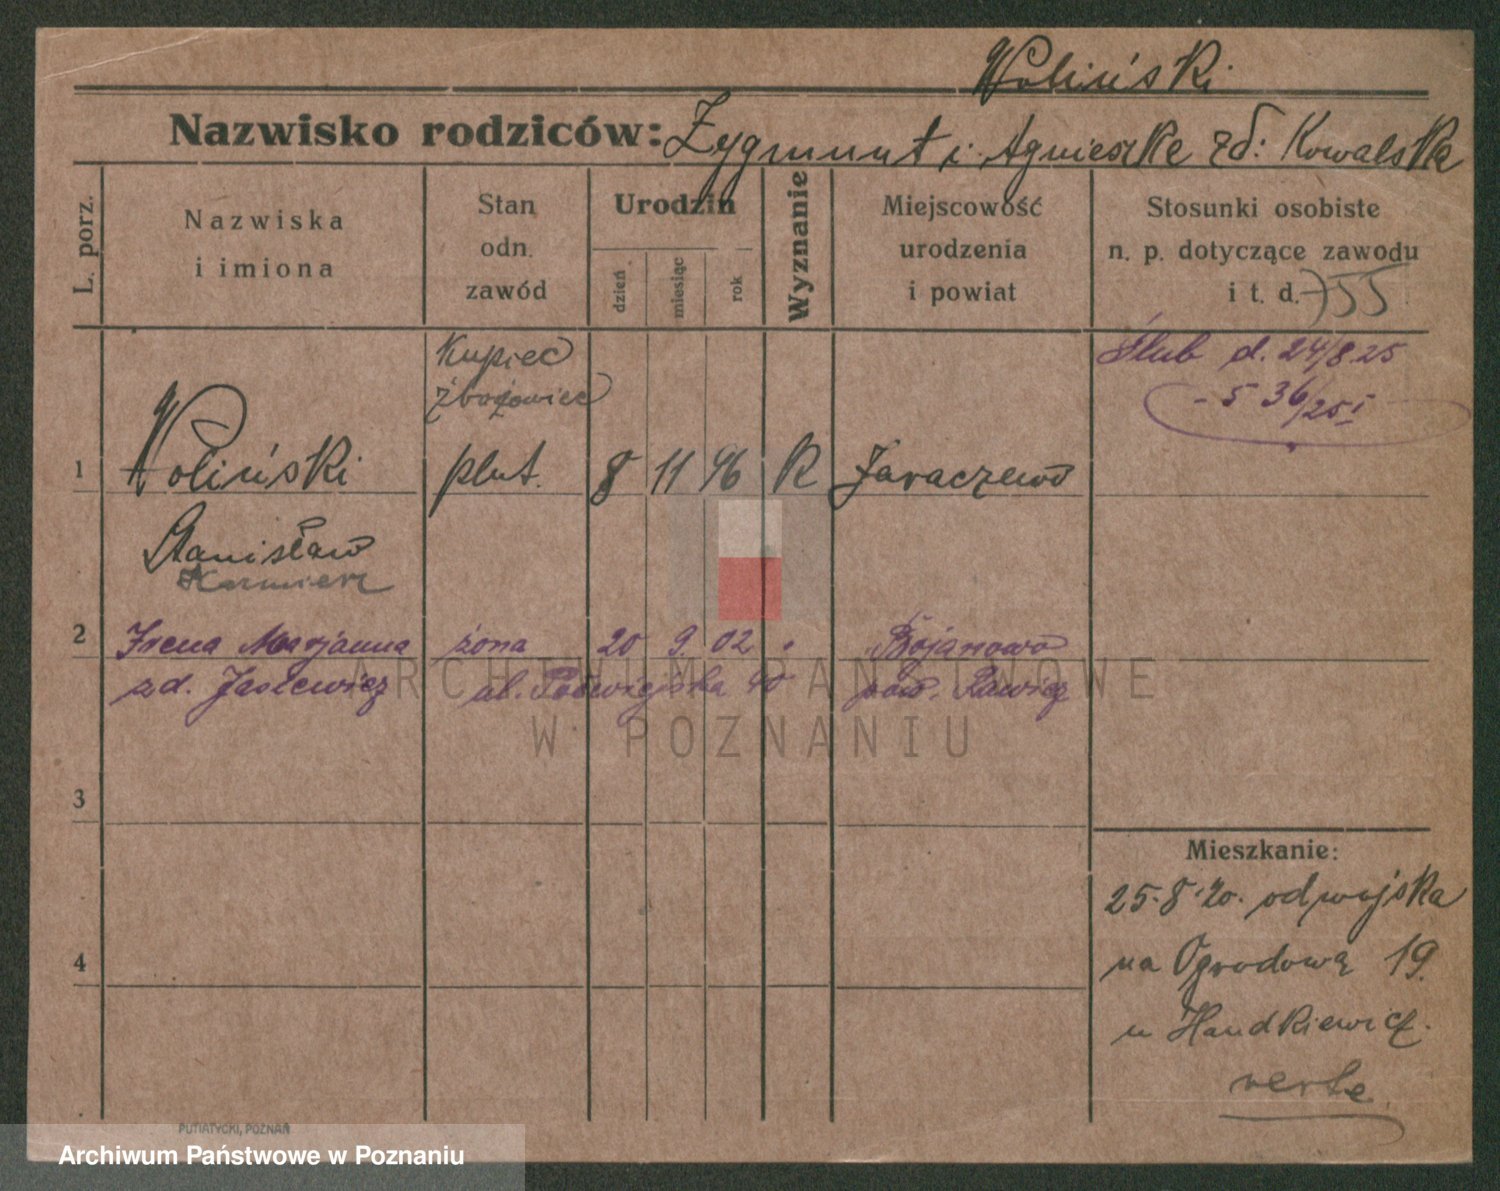 Woliński
Nazwisko rodziców: Zygmunt i Agnieszka zd: Kowalska
L. porz.
Nazwiska
i imiona
Stan
odn.
zawód
Urodzin
dzień
miesiąc
rok
Wyznanie
Miejscowość
urodzenia
i powiat
Stosunki osobiste
n. p. dotyczące zawodu
i t. d. 755
Kupiec
zbożowiec
Ślub d. 24/8 25
- 536/25 I
1 Woliński plut. 8 11 96 R Jaraczewo
Stanisław
Kazmierz
2 Irena Marjanna żona 20 9. 02 Bojanowo
zd. Jaślewicz ul. 40 pow. Rawicz
3
4
Mieszkanie:
25.8.20. od wojska
na Ogrodową 19.
u Handkiewicz.
verte
PUTIATYCKI, POZNAŃ
ARCHIWUM PAŃSTWOWE
W POZNANIU
Archiwum Państwowe w Poznaniu